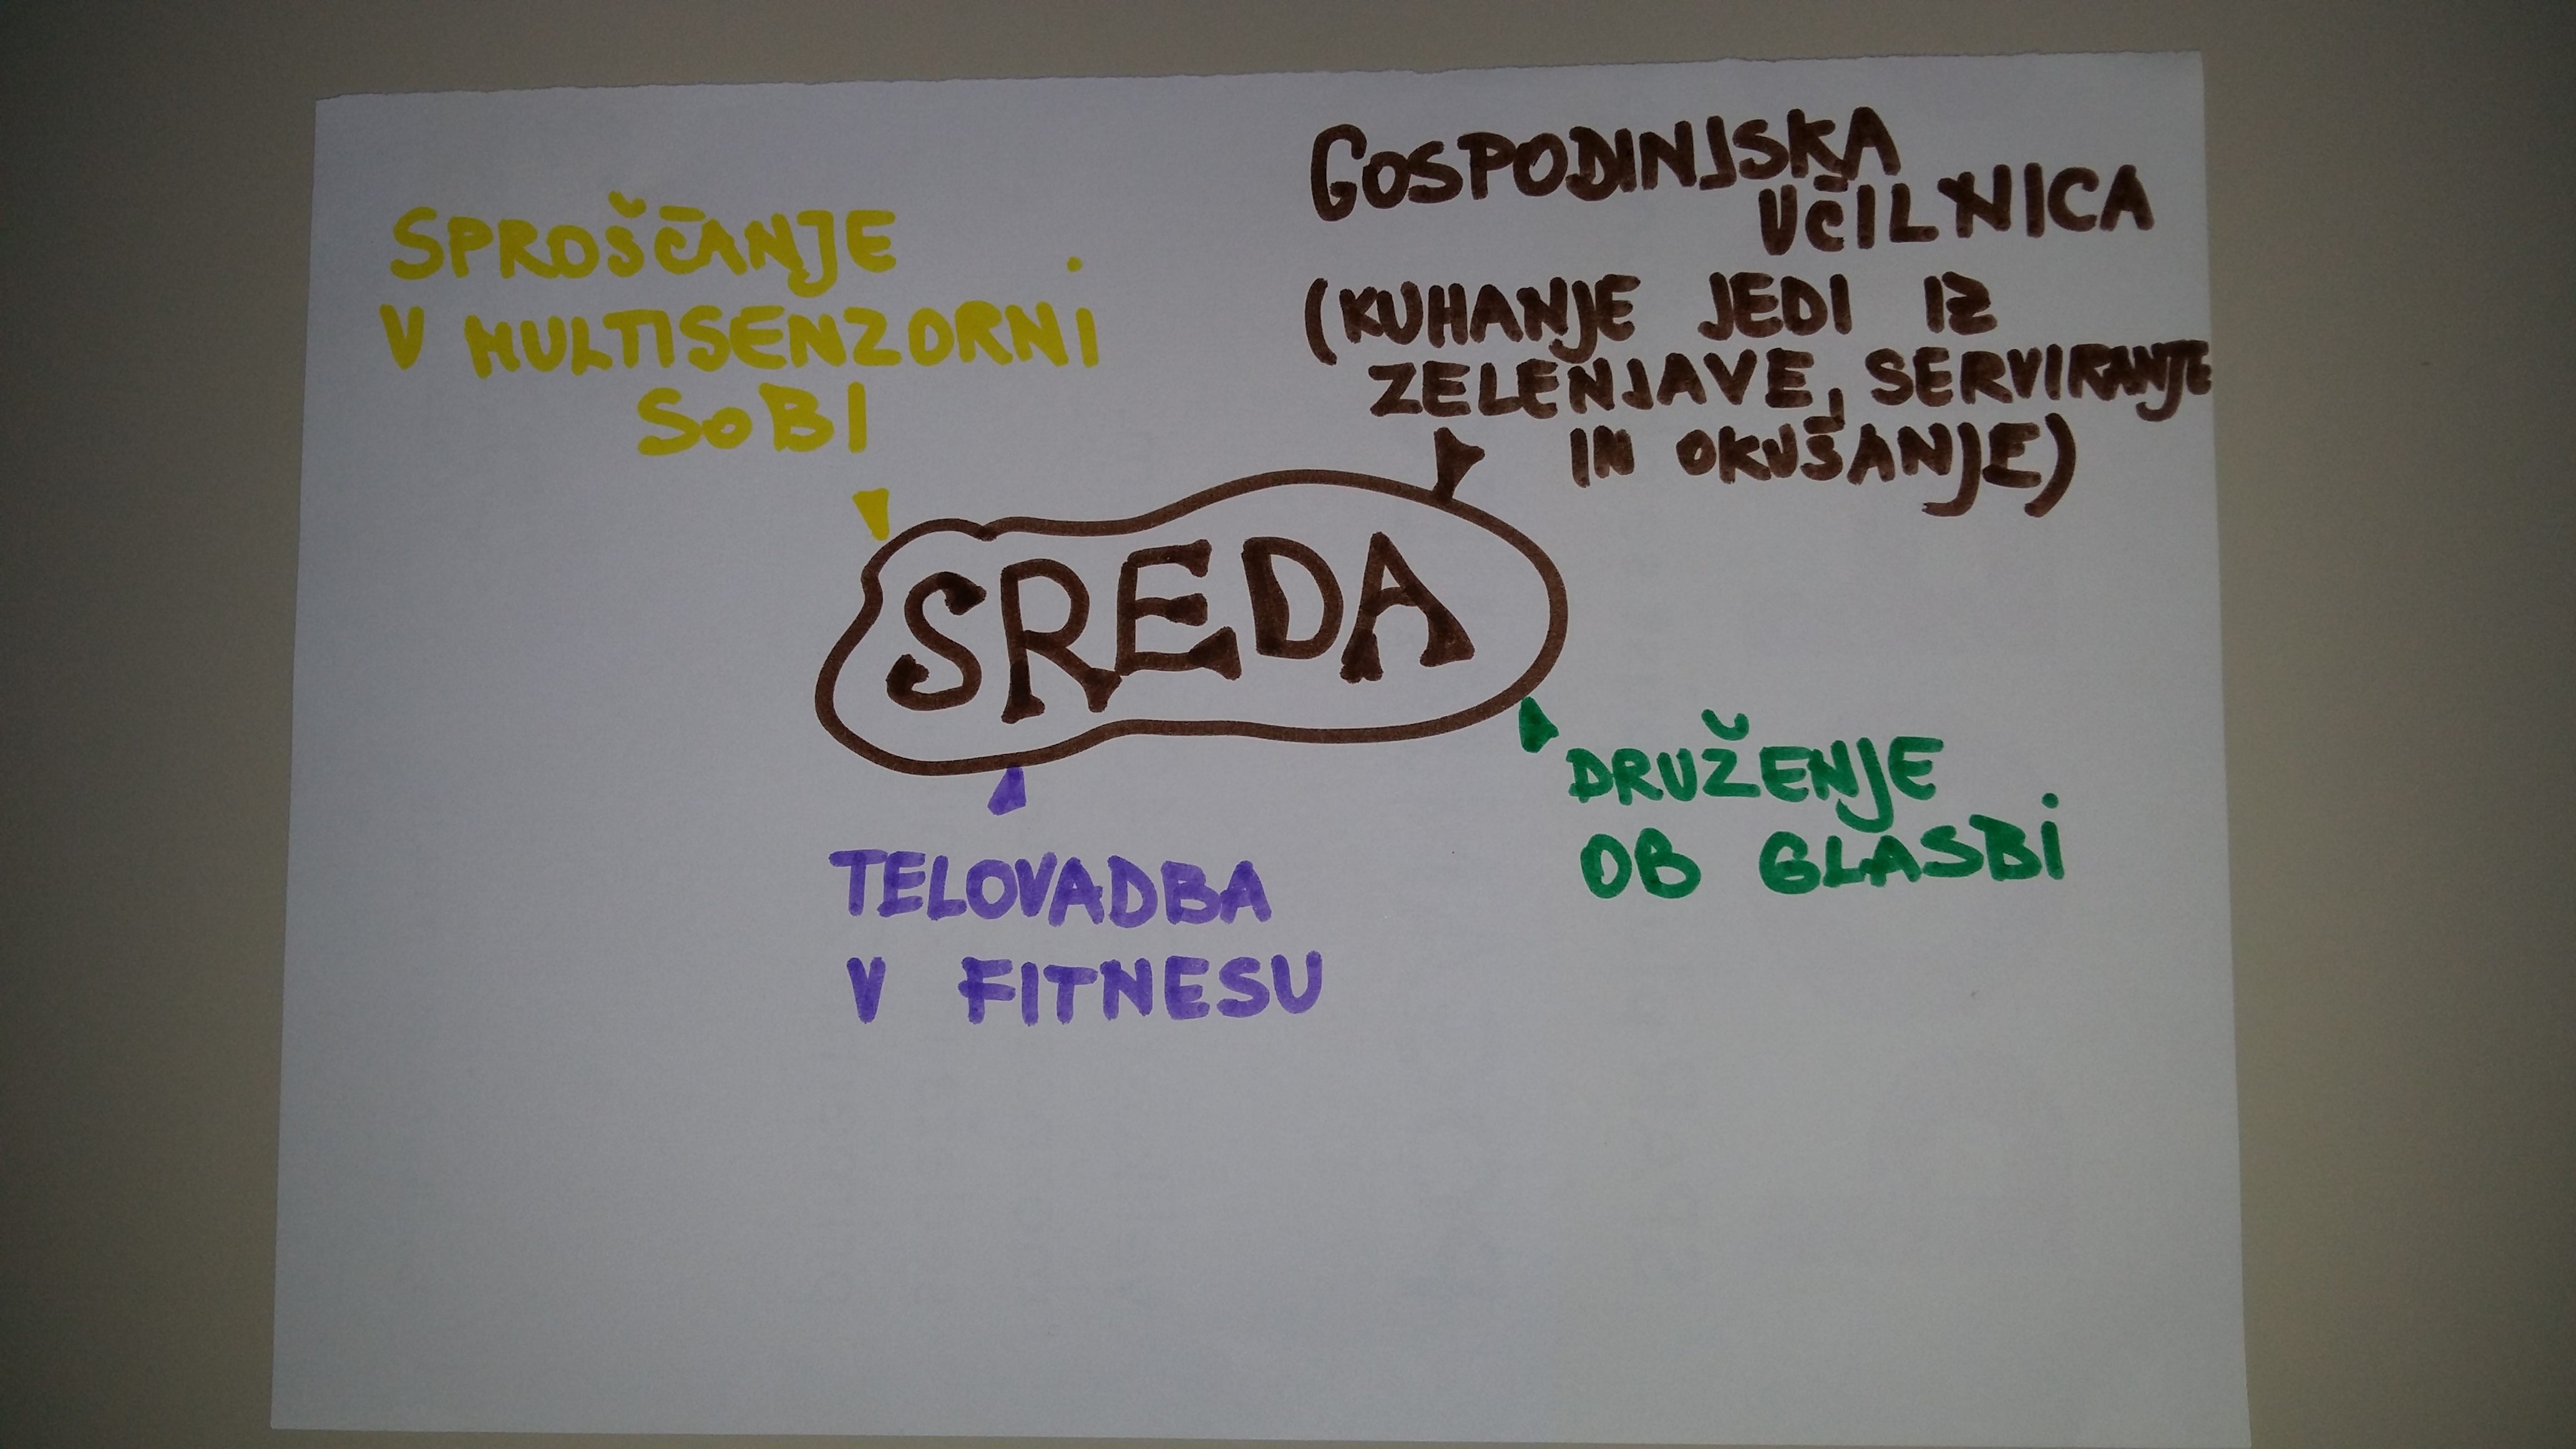 SPROŠČANJE
V MULTISENZORNI
SOBI
GOSPODINJSKA
UČILNICA
(KUHANJE JEDI IZ
ZELENJAVE, SERVIRANJE
IN OKUŠANJE)
SREDA
DRUŽENJE
OB GLASBI
TELOVADBA
V FITNESU